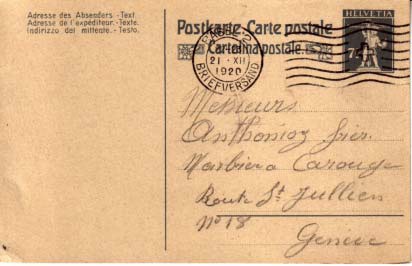 Adresse des Absenders - Text.
Adresse de l'expéditeur. - Texte.
Indirizzo del mittente. - Testo.
Postkarte-Carte postale
Cartolina postale.
21 · XII
1920
BRIEFVERSAND
HELVETIA
7½
Messieurs
Anthonioz frèr.
Marbiera Carouge
Route St Jullien
No 18
Genève